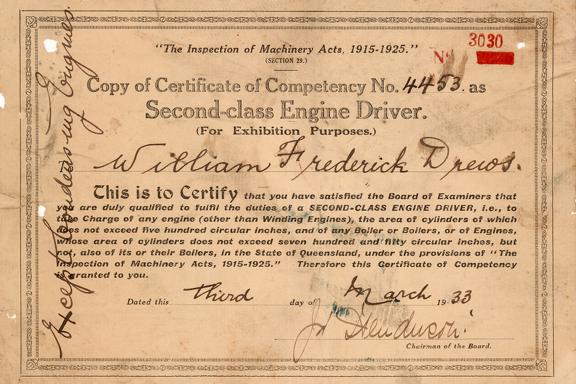 "The Inspection of Machinery Acts, 1915-1925."
(SECTION 29.)
No. 3030
Copy of Certificate of Competency No. 4453. as
Second-class Engine Driver.
(For Exhibition Purposes.)
William Frederick Drews.
This is to Certify that you have satisfied the Board of Examiners that
you are duly qualified to fulfil the duties of a SECOND-CLASS ENGINE DRIVER, i.e., to
take Charge of any engine (other than Winding Engines), the area of cylinders of which
does not exceed five hundred circular inches, and of any Boiler or Boilers, or of Engines,
whose area of cylinders does not exceed seven hundred and fifty circular inches, but
not, also of its or their Boilers, in the State of Queensland, under the provisions of "The
Inspection of Machinery Acts, 1915-1925." Therefore this Certificate of Competency
is granted to you.
Dated this third day of March 1933
Jd Henderson.
Chairman of the Board.
Except Condensing Engines